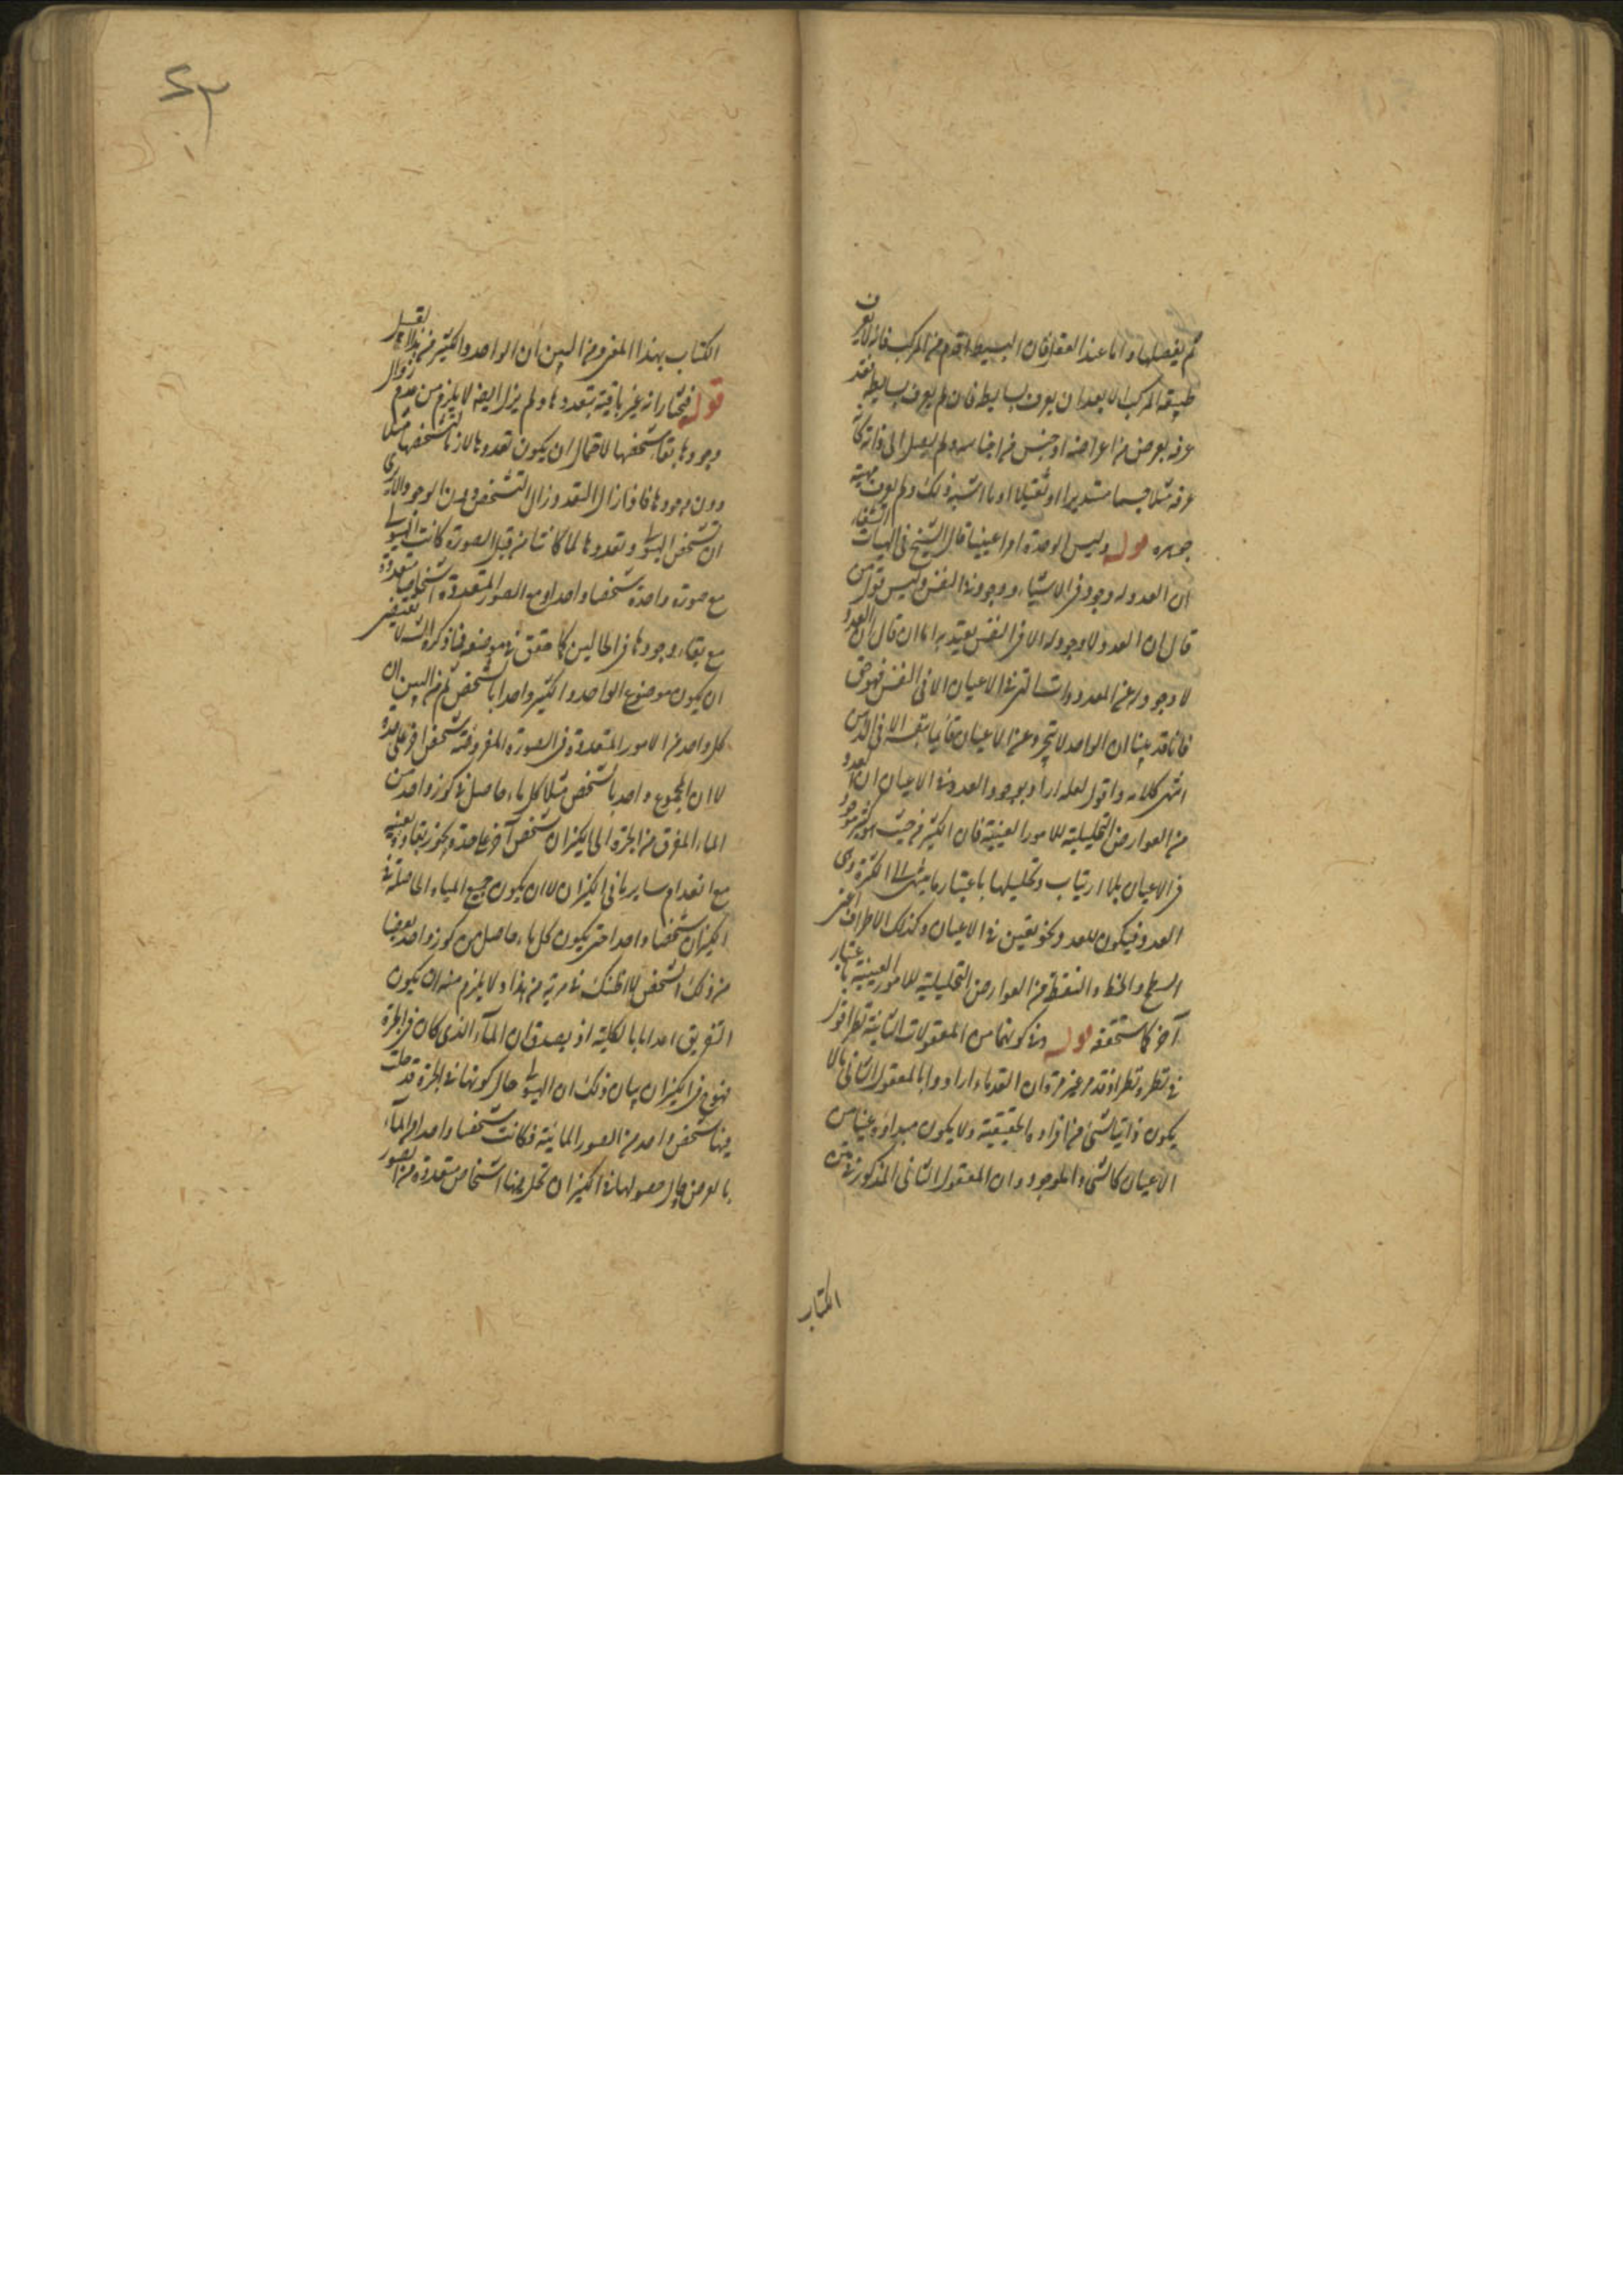 ثم يفصلها واما عند العقل فان البسيط اقدم من المركب فانه لا يعرف
طبيعة المركب الا بعد ان يعرف بسايطه فان لم يعرف بسايطه فقد
عرفه بعرض من اعراضه او جنس من اجناسه ولم يصل الى ذاته كانه
عرفه مثلا جسما مستديرا او ثقيلا او ما اشبه ذلك ولم يعرف مهية
جوهره قوله وليس الوحدة امرا عينيا قال الشيخ في الهيات الشفاء
ان العدد له وجود في الاشياء ووجود في النفس وليس قول من
قال ان العدد لا وجود له الا في النفس بشيء يعتد به اما ان قال ان العدد
لا وجود له عن المعدودات التي في الاعيان الا في النفس فهو حق
فانا قد بينا ان الواحد لا يتجرد عن الاعيان قائما بنفسه الا في الذهن
انتهى كلامه واقول لعله اراد بوجود العدد في الاعيان ان العدد
من العوارض التحليلية للامور العينية فان الكثير من حيث هو كثير موجود
في الاعيان بلا ارتياب وتحليلها باعتبار ما ينتهي الى الكثرة وهى
العدد فيكون للعدد نحو تعين في الاعيان وكذلك الاطراف اعنى
السطح والخط والنقطة من العوارض التحليلية للامور العينية باعتبار
آخر كما ستحققه قوله وفي كونهما من المعقولات الثانية نظر اقول
في نظره نظر اذ قد مر غير مرة ان القدماء ارادوا بالمعقول الثاني ما لا
يكون ذاتيا لشئ من افراده الحقيقية ولا يكون مبداؤه عينا من
الاعيان كالشئ والموجود وان المعقول الثاني المذكور في متن
الكتاب
الكتاب بهذا المعنى ومن البين ان الواحد والكثير من هذا القبيل
قوله فيختار انه غير باقية بتعددها ولم يزل ايضا لا يلزم من عدم زوال
وجودها بقاء تشخصها لاحتمال ان يكون تعددها لازما لتشخصها مثلا
دون وجودها فاذا زال التعدد زال التشخص دون الوجود والا ترى
ان تشخص الهيولى وتعددها لما كانتا من قبل الصورة كانت الهيولى
مع صورة واحدة شخصا واحدا ومع الصور المتعددة اشخاصا متعددة
مع بقاء وجودها في الحالين كما حقق في موضعه فما ذكره الشه لا يقتضى
ان يكون موضوع الواحد والكثير واحدا بالشخص ثم من البين ان
كل واحد من الامور المتعددة في الصورة المفروضة شخص آخر على حدة
لا ان المجموع واحد بالشخص مثلا كل ماء حاصل في كوز واحد من
الماء المفرق من الجرة الى الكيزان شخص آخر على حدة يجوز بقاؤه بعينه
مع انعدام ساير ما في الكيزان لا ان يكون جميع المياه الحاصلة في
الكيزان شخصا واحدا حتى يكون كل ماء حاصل من كوز واحد بعضا
من ذلك الشخص لا اظنك في مرية من هذا ولا يلزم منه ان يكون
التفريق اعداما بالكلية اذ يصدق ان الماء الذى كان في الجرة
فهو في الكيزان بيان ذلك ان الهيولى حال كونها في الجرة قد حلت
فيها شخص واحد من الصور المائية فكانت شخصا واحدا من الماء
بالعرض وحال حصولها في الكيزان تحل فيها اشخاص متعددة من الصور